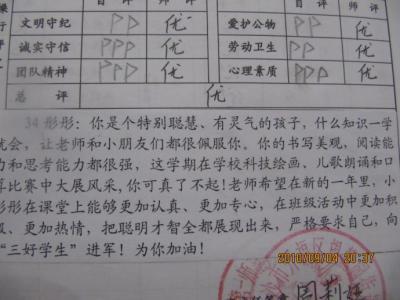 自 评 师 评 自 评 师 评
文明守纪 PP 优 爱护公物 PP 优
诚实守信 PPP 优 劳动卫生 PPP 优
团队精神 PPP 优 心理素质 PPP 优
总 评 优
34 彤彤：你是个特别聪慧、有灵气的孩子，什么知识一学
就会，让老师和小朋友们都很佩服你。你的书写美观，阅读能
力和思考能力都很强，这学期在学校科技绘画、儿歌朗诵和口
算比赛中大展风采，你可真了不起！老师希望在新的一年里，小
彤彤在课堂上能够更加认真、更专心，在班级活动中更加积
极、更加热情，把聪明才智全都展现出来，严格要求自己，向
“三好学生”进军！为你加油！
2010/09/04 20:37